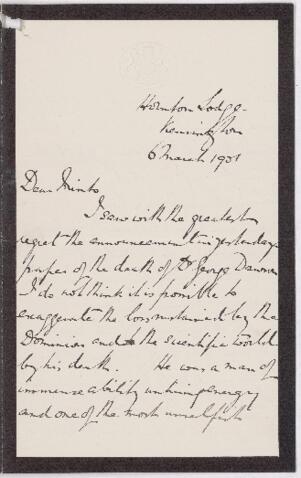 Hornton Lodge
Kensington
6 March 1901
Dear Minto
I saw with the greatest
regret the announcement in yesterdays
papers of the death of Dr George Dawson
I do not think it is possible to
exaggerate the loss sustained by the
Dominion and to the scientific world
by his death. He was a man of
immense ability untiring energy
and one of the most unselfish